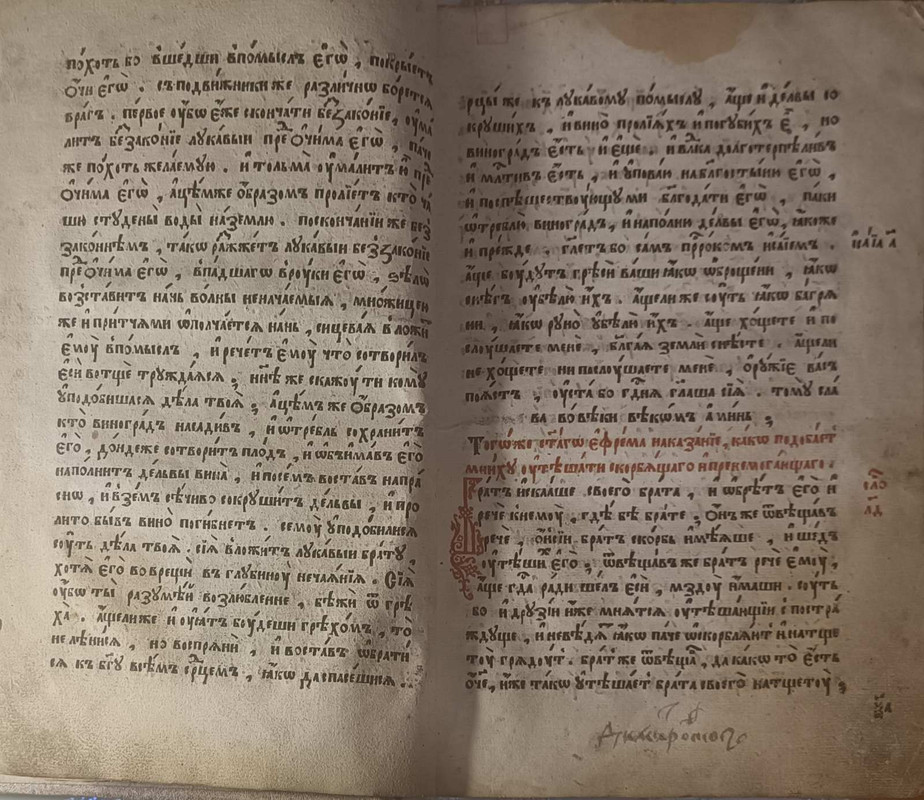 похоть бо вшедши впомыслъ єгѡ̀ , покрыетъ
Ѻчи єгѡ̀ . съподвижники же различнѡ борется
врагъ . первое оубѡ є҆же скончати беззаконїе , оума
литъ беззаконїе лукавыи пре Ѻчима єгѡ̀ , паче
же похоть желаемую . и только оумалитъ ю пре
Ѻчима єгѡ̀ , ацѣмже ѻбразомъ пролїетъ кто ча
шю студены воды на землю . поскончанїи же без
законнѣмъ , такѡ ражжетъ лукавыи беззаконїе
пре Ѻчима єгѡ̀ , впадшагѡ вроуки єгѡ̀ , ѕѣлѡ
возставитъ нань волны неначаемыя , множицею
же и притчями ѡполчается нань , сицевая вложи
ємоу впомыслъ , и речетъ ємоу что сотворилъ
єси вотще труждаяся , нн҃ѣ же скажоу ти комꙋ
уподобишася дѣла твоя , ацѣмъ же Ѻбразомъ
кто виноградъ насадивъ , и ѡтребль сохранитъ
єго , дондеже сотворитъ плодъ , и ѡбъимавъ єго
наполнитъ делвы вина , и посемъ воставъ напра
сно , и вземъ сѣчиво сокрушитъ делвы , и про
лито бывъ вино погибнетъ . семоу уподобилися
соуть дѣла твоя . сїя вложитъ лукавыи брату
хотя єго воврещи въ глубиноу нечаянїя . Сїя
оубѡ ты разумѣи возлюбленне , бѣжи ѿ грѣ
ха . ащели же и оуятъ боудеши грѣхомъ , то
не лѣнися , но воспряни , и воставъ ѡбрати
ся къ бг҃у всѣмъ ср҃цемъ , якѡ да спасешися .
рцы же къ лукавому помыслу , аще и делвы со
крушихъ , и вино пролїяхъ и погубихъ є , но
виноградъ єсть и єще . и влк҃а долготерпѣливъ
и млт҃ивъ єсть , и уповаю на благостыни єгѡ̀ ,
и поспѣшествоующу ми благодати єгѡ̀ , паки
ѡтреблю виноградъ , и наполни делвы єгѡ̀ , якоже
и прежде . гл҃етъ бо самъ прр҇окомъ исаїемъ .
аще боудутъ грѣси ваши якѡ ѡброщени , якѡ
снѣгъ оубѣлю ихъ . ащели же соуть якѡ багря
ни , якѡ руно убѣлю ихъ . аще хощете и по
слоушаете мене , благая земли снѣсте . ащели
не хощете ни послоушаете мене , ѻружїе васъ
поястъ , оуста бо гд҇ня гл҃аша сїя . тому сла
ва во вѣки вѣкомъ аминь ,
исаїа а҃
Тогѡже ст҃агѡ Єфрема наказанїе , какѡ подобаетъ
мниху оутѣшати скорбящаго и пренемогающаго .
сло
л҃д
Братъ искааше своего брата , и ѡбрѣтъ єго и
рече кнемоу , гдѣ бѣ брате , ѻнъ же ѿвѣщавъ
рече , ѻнсїи братъ скорбь имѣяше , и шедъ
оутѣши єго , ѿвѣщавже братъ рече ємоу ,
аще гд҇а ради шелъ єси , мздоу имаши . соуть
бо и друзїи иже мнятся оутѣшающїи с постра
ждущe , и невѣдя якѡ паче ѡскорбляютъ и натще
тоу грядоутъ . братъ же ѿвѣща , да какѡ то єсть
ѻч҃е , иже такѡ утѣшаетъ брата своего натщетоу ,